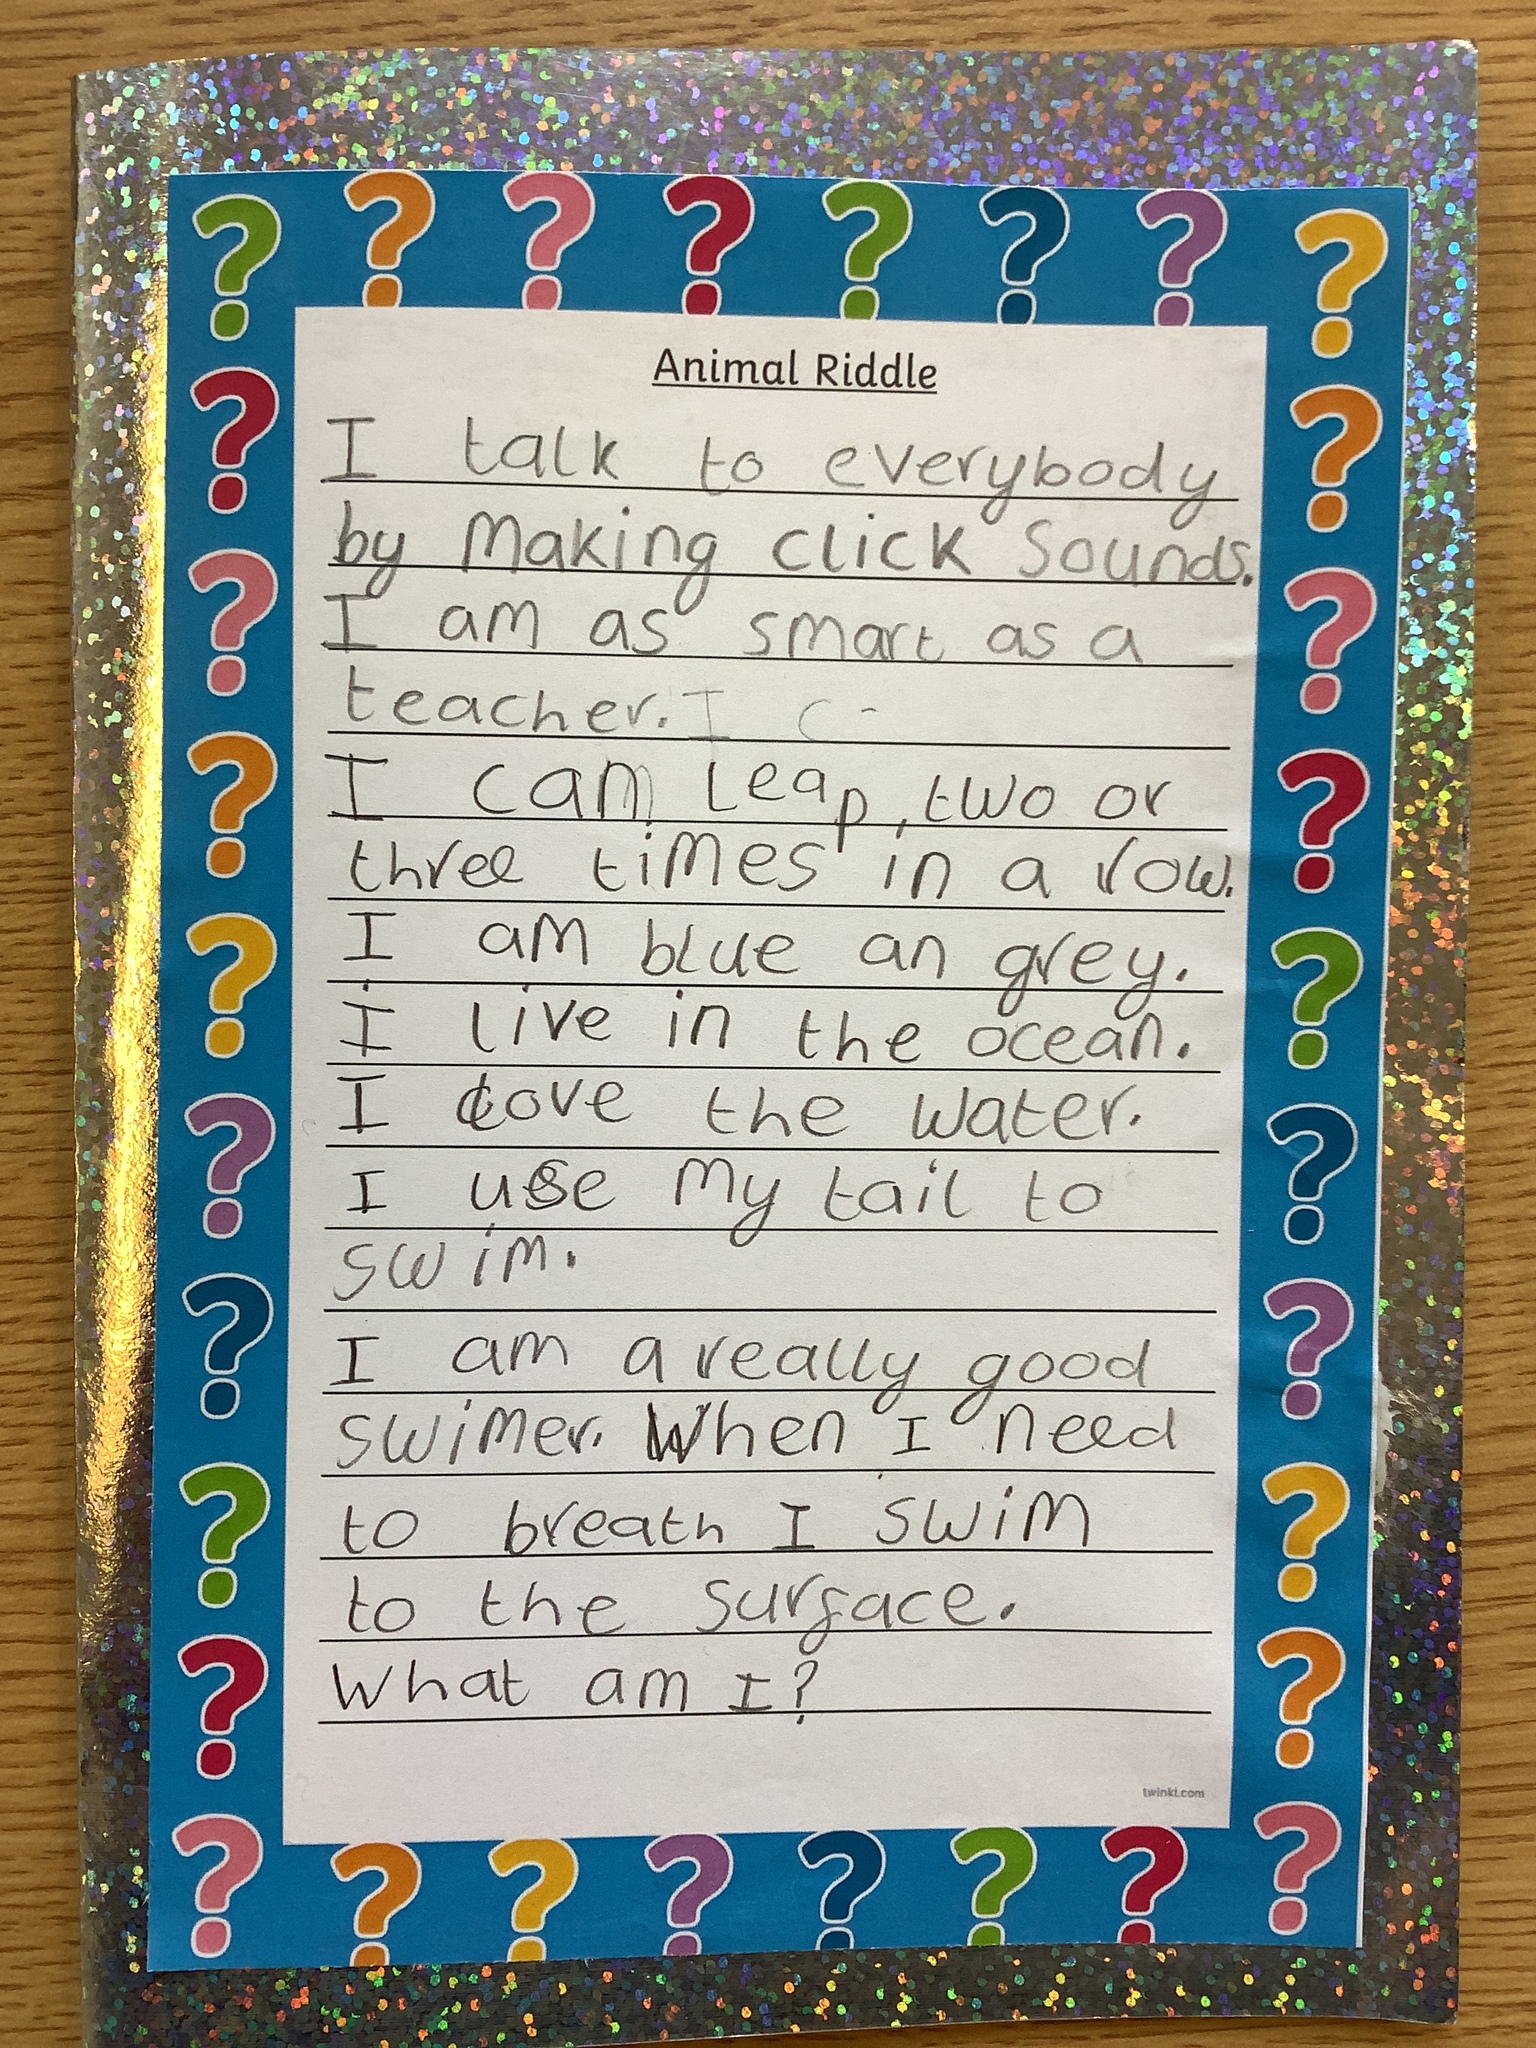 Animal Riddle
I talk to everybody
by making click sounds.
I am as smart as a
teacher. I c
I can leap, two or
three times in a row.
I am blue an grey.
I live in the ocean.
I love the water.
I use my tail to
swim.
I am a really good
swimer. When I need
to breath I swim
to the surface.
What am I?
twinkl.com